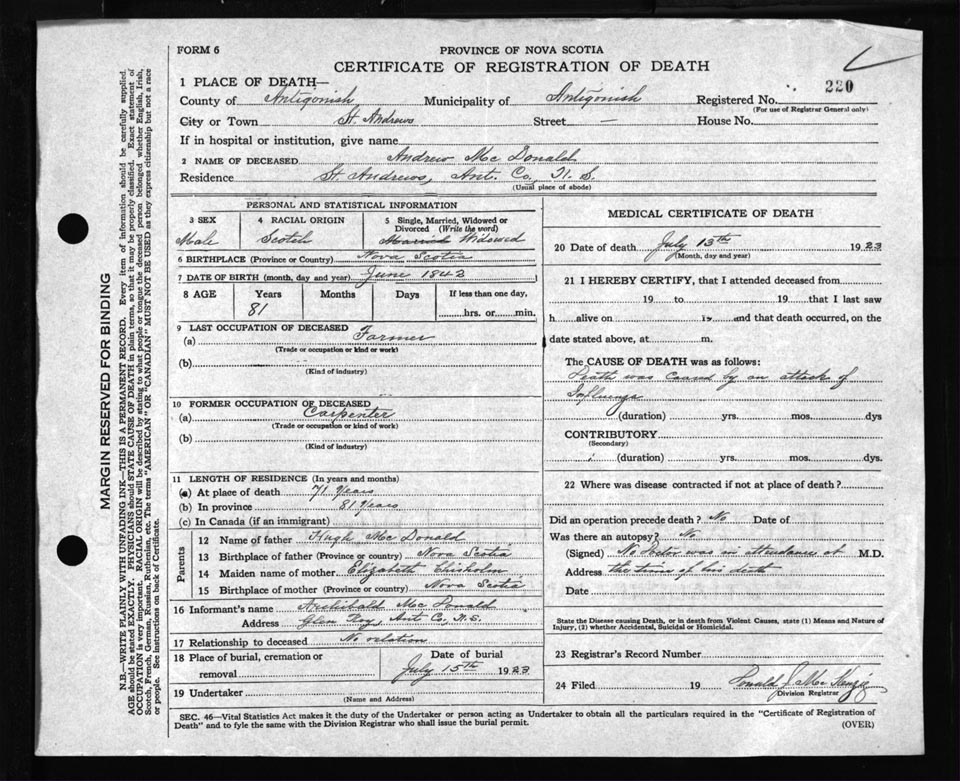 FORM 6
PROVINCE OF NOVA SCOTIA
CERTIFICATE OF REGISTRATION OF DEATH
220
1 PLACE OF DEATH—
County of Antigonish Municipality of Antigonish Registered No.
(For use of Registrar General only)
City or Town St. Andrews Street — House No.
If in hospital or institution, give name
2 NAME OF DECEASED Andrew Mc Donald
Residence St. Andrews, Ant. Co., N. S.
(Usual place of abode)
PERSONAL AND STATISTICAL INFORMATION
3 SEX 4 RACIAL ORIGIN 5 Single, Married, Widowed or
Divorced (Write the word)
Male Scotch Married Widowed
6 BIRTHPLACE (Province or Country) Nova Scotia
7 DATE OF BIRTH (month, day and year) June 1842
8 AGE Years Months Days If less than one day,
81 hrs. or min.
9 LAST OCCUPATION OF DECEASED
(a) Farmer
(Trade or occupation or kind or work)
(b)
(Kind of industry)
10 FORMER OCCUPATION OF DECEASED
(a) Carpenter
(Trade or occupation or kind of work)
(b)
(Kind of industry)
11 LENGTH OF RESIDENCE (In years and months)
(a) At place of death 71 Years
(b) In province 81 Years
(c) In Canada (if an immigrant)
Parents
12 Name of father Hugh Mc Donald
13 Birthplace of father (Province or country) Nova Scotia
14 Maiden name of mother Elizabeth Chisholm
15 Birthplace of mother (Province or country) Nova Scotia
16 Informant's name Archibald Mc Donald
Address Glen Roy, Ant Co, N.S.
17 Relationship to deceased No relation
18 Place of burial, cremation or Date of burial
removal July 15th 1923
19 Undertaker
(Name and Address)
MEDICAL CERTIFICATE OF DEATH
20 Date of death July 13th 1923
(Month, day and year)
21 I HEREBY CERTIFY, that I attended deceased from
19 to 19 that I last saw
h alive on 19 and that death occurred, on the
date stated above, at m.
The CAUSE OF DEATH was as follows:
Death was caused by an attack of
Influenza
(duration) yrs. mos. dys
CONTRIBUTORY
(Secondary)
(duration) yrs. mos. dys.
22 Where was disease contracted if not at place of death?
Did an operation precede death? No Date of
Was there an autopsy? No
(Signed) No Doctor was in attendance at M.D.
Address the time of his death
Date
State the Disease causing Death, or in death from Violent Causes, state (1) Means and Nature of
Injury, (2) whether Accidental, Suicidal or Homicidal.
23 Registrar's Record Number
24 Filed 19 Donald J. Mc Kenzie
Division Registrar
SEC. 46—Vital Statistics Act makes it the duty of the Undertaker or person acting as Undertaker to obtain all the particulars required in the "Certificate of Registration of
Death" and to fyle the same with the Division Registrar who shall issue the burial permit.
(OVER)
MARGIN RESERVED FOR BINDING
N.B.—WRITE PLAINLY WITH UNFADING INK—THIS IS A PERMANENT RECORD. Every item of information should be carefully supplied.
AGE should be stated EXACTLY. PHYSICIANS should STATE CAUSE OF DEATH in plain terms, so that it may be properly classified. Exact statement of
OCCUPATION is very important. RACIAL ORIGIN will be described by stating to what people or tongue the deceased person belonged whether English, Irish,
Scotch, French, German, Russian, Ruthenian, etc. The terms "AMERICAN" OR "CANADIAN" MUST NOT BE USED as they express citizenship but not a race
or people. See instructions on back of Certificate.